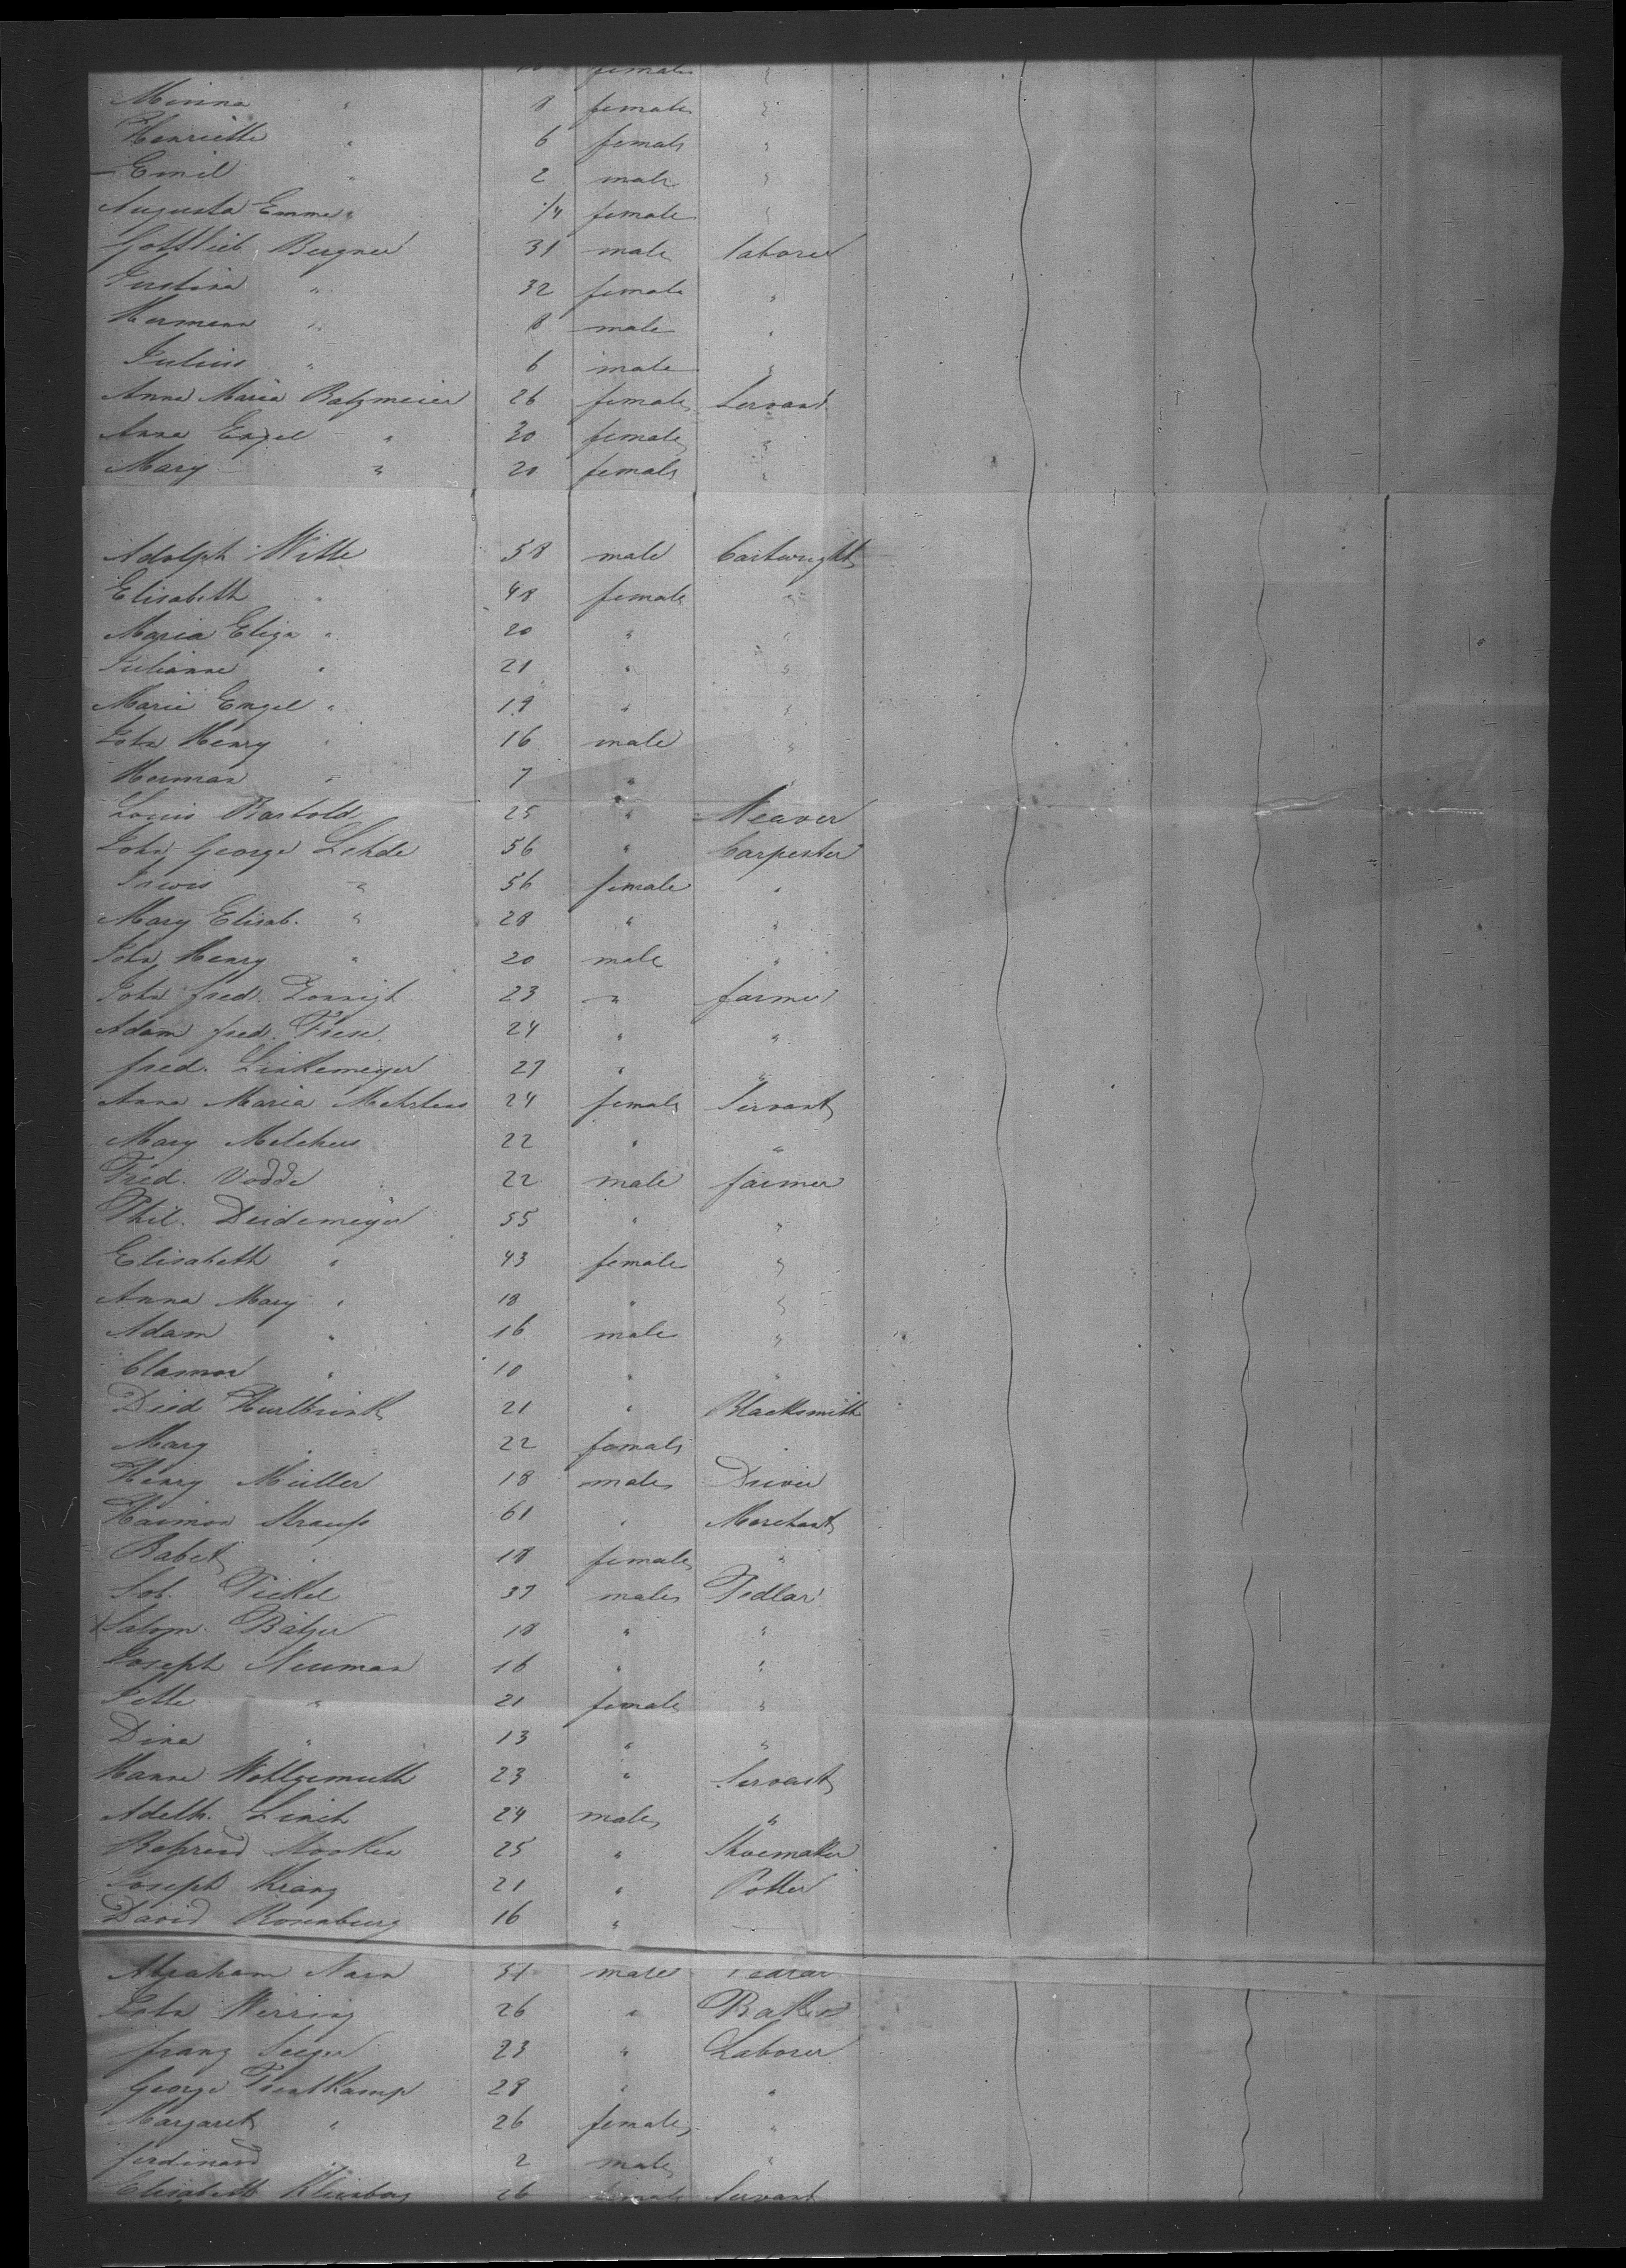 female "
Minna " 8 female "
Henriette " 6 female "
Emil " 2 male "
Augusta Emma " 1/4 female "
Gottlieb Bergner 31 male laborer
Justina " 32 female "
Hermann " 8 male "
Julius " 6 male "
Anna Maria Batzmeier 26 female Servant
Anna Engel " 30 female "
Mary " 20 female "
Adolph Witte 58 male Cartwright
Elisabeth " 48 female "
Maria Eliza " 20 " "
Julianne " 21 " "
Marie Engel " 19 " "
John Henry " 16 male "
Herman " 7 " "
Louis Bartold 25 " Weaver
John George Lehde 56 " Carpenter
" 56 female "
Mary Elisab. " 28 " "
John Henry " 20 male "
John fred. 23 " farmer
Adam fred. Friese 24 " "
fred. Linkemeyer 27 " "
Anna Maria Mehrtens 24 female Servant
Mary Melchers 22 " "
Fred. Vodde 22 male farmer
Phil. Deidemeyer 55 " "
Elisabeth " 43 female "
Anna Mary " 18 " "
Adam " 16 male "
Clamor " 10 " "
Died Hurlbrink 21 " Blacksmith
Mary " 22 female "
Henry Müller 18 male Driver
Haiman Strauss 61 " Merchant
Babet " 18 female "
Sol. Pickel 37 male Pedlar
Salom. Bätzer 18 " "
Joseph Neuman 16 " "
Jette " 21 female "
Dina " 13 " "
Hanna Wohlgemuth 23 " Servant
Adelh. Linch 24 male "
25 " Shoemaker
Joseph Kranz 21 " Potter
David Rosenburg 16 "
Abraham 31 male Pedlar
John Werring 26 " Baker
franz Seeger 23 " Laborer
George Trentkamp 28 " "
Margaret " 26 female "
ferdinand " 2 male "
Elisabeth 26 female Servant